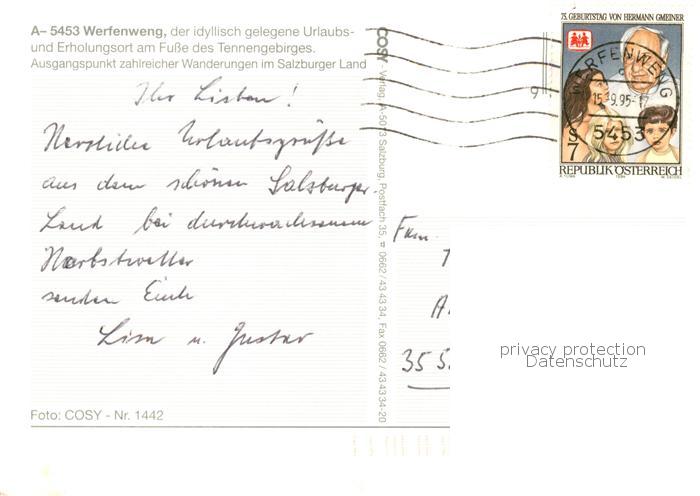 A– 5453 Werfenweng, der idyllisch gelegene Urlaubs-
und Erholungsort am Fuße des Tennengebirges.
Ausgangspunkt zahlreicher Wanderungen im Salzburger Land
Ihr Lieben!
Herzliche Urlaubsgrüße
aus dem schönen Salzburger
Land bei durchwachsenem
Herbstwetter
senden Euch
Lisa u. Gustav
Foto: COSY - Nr. 1442
COSY - Verlag, A-5013 Salzburg, Postfach 35, ☎ 0662 / 43 43 34, Fax 0662 / 43 43 34-20
75. GEBURTSTAG VON HERMANN GMEINER
S 7
REPUBLIK ÖSTERREICH
1994
WERFENWENG
15.-9.95-17
5453
Fam.
35 5
privacy protection
Datenschutz